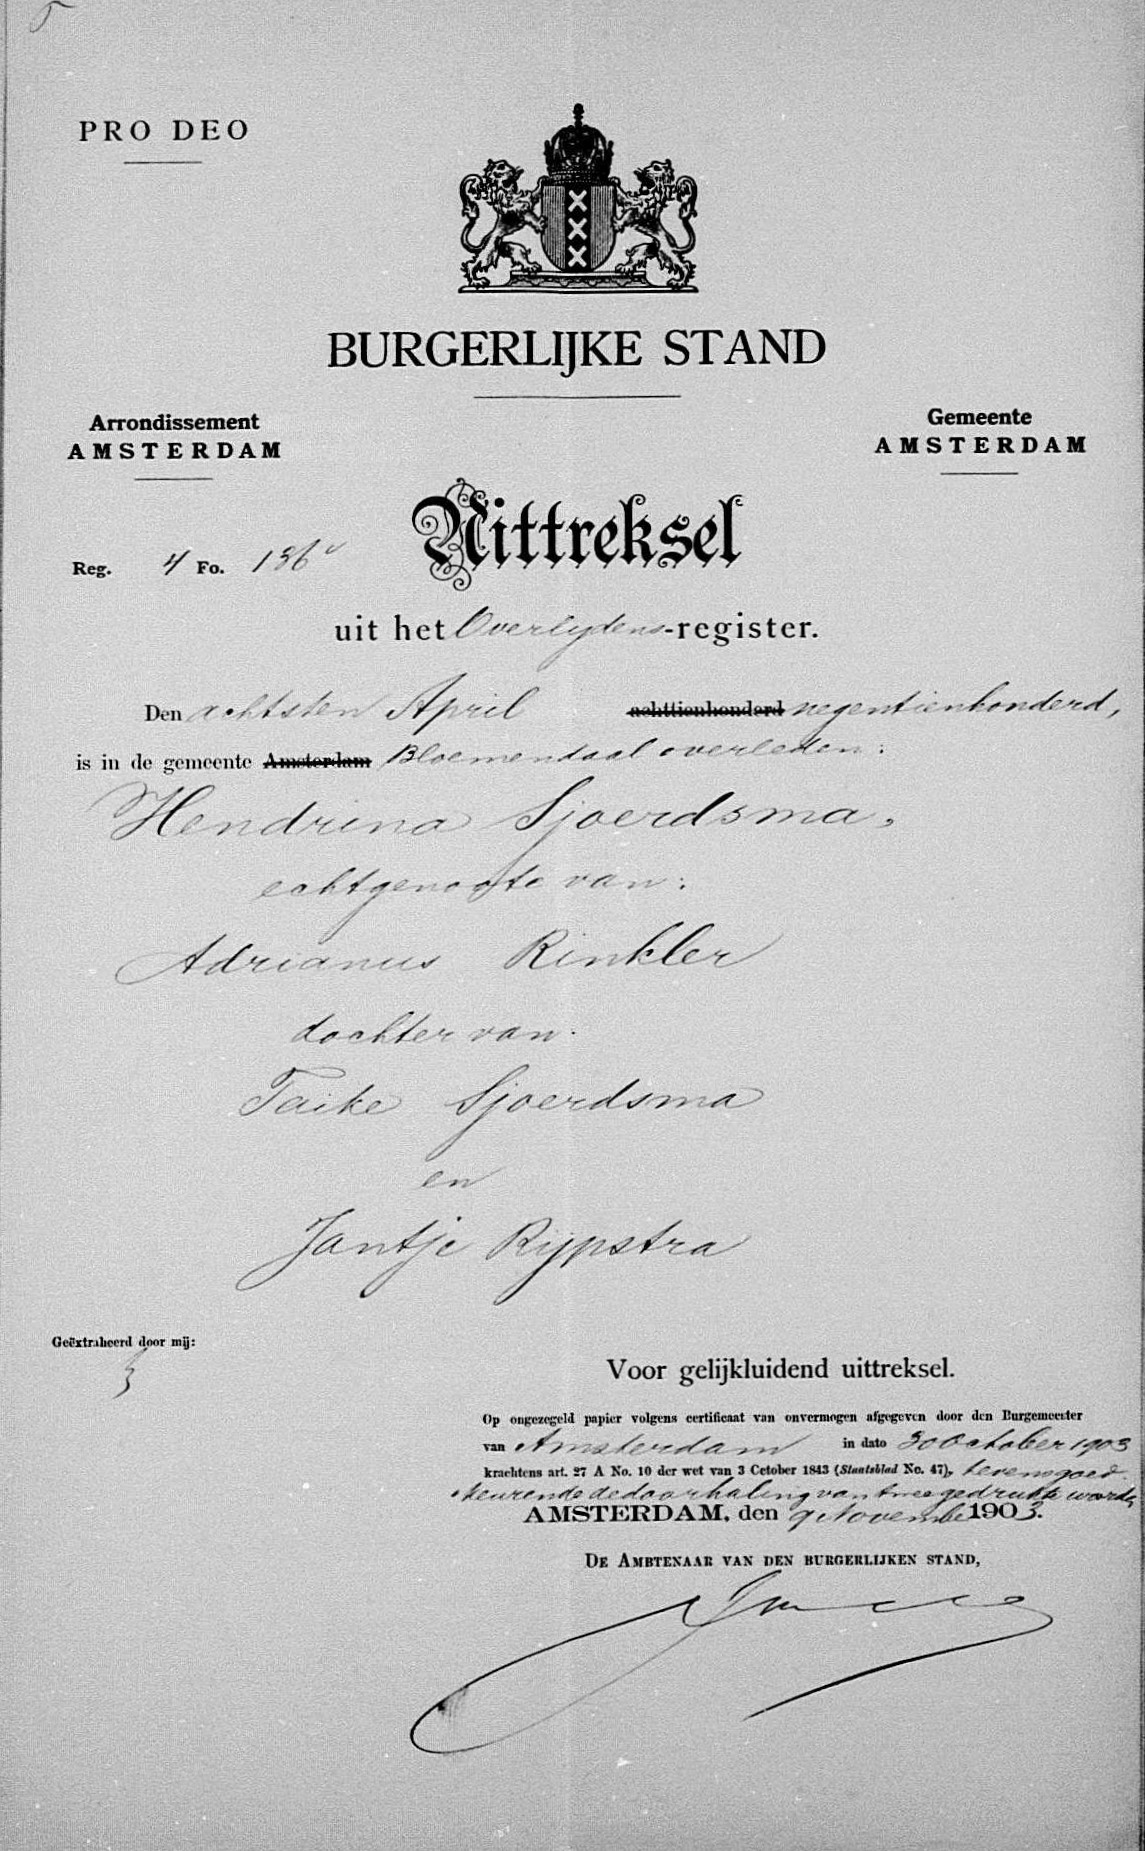 PRO DEO
BURGERLIJKE STAND
Arrondissement
AMSTERDAM
Gemeente
AMSTERDAM
Uittreksel
Reg. 4 Fo. 136v
uit het Overlijdens-register.
Den achtsten April achttienhonderd negentienhonderd,
is in de gemeente Amsterdam Bloemendaal overleden:
Hendrina Sjoerdsma,
echtgenoote van:
Adrianus Rinkler
dochter van:
Taike Sjoerdsma
en
Jantje Rypstra
Geëxtraheerd door mij:
Voor gelijkluidend uittreksel.
Op ongezegeld papier volgens certificaat van onvermogen afgegeven door den Burgemeester
van Amsterdam in dato 30 October 1903
krachtens art. 27 A No. 10 der wet van 3 October 1843 (Staatsblad No. 47), tevens goed-
keurende de doorhaling van twee gedrukte woorden
AMSTERDAM, den 9 November 1903.
DE AMBTENAAR VAN DEN BURGERLIJKEN STAND,